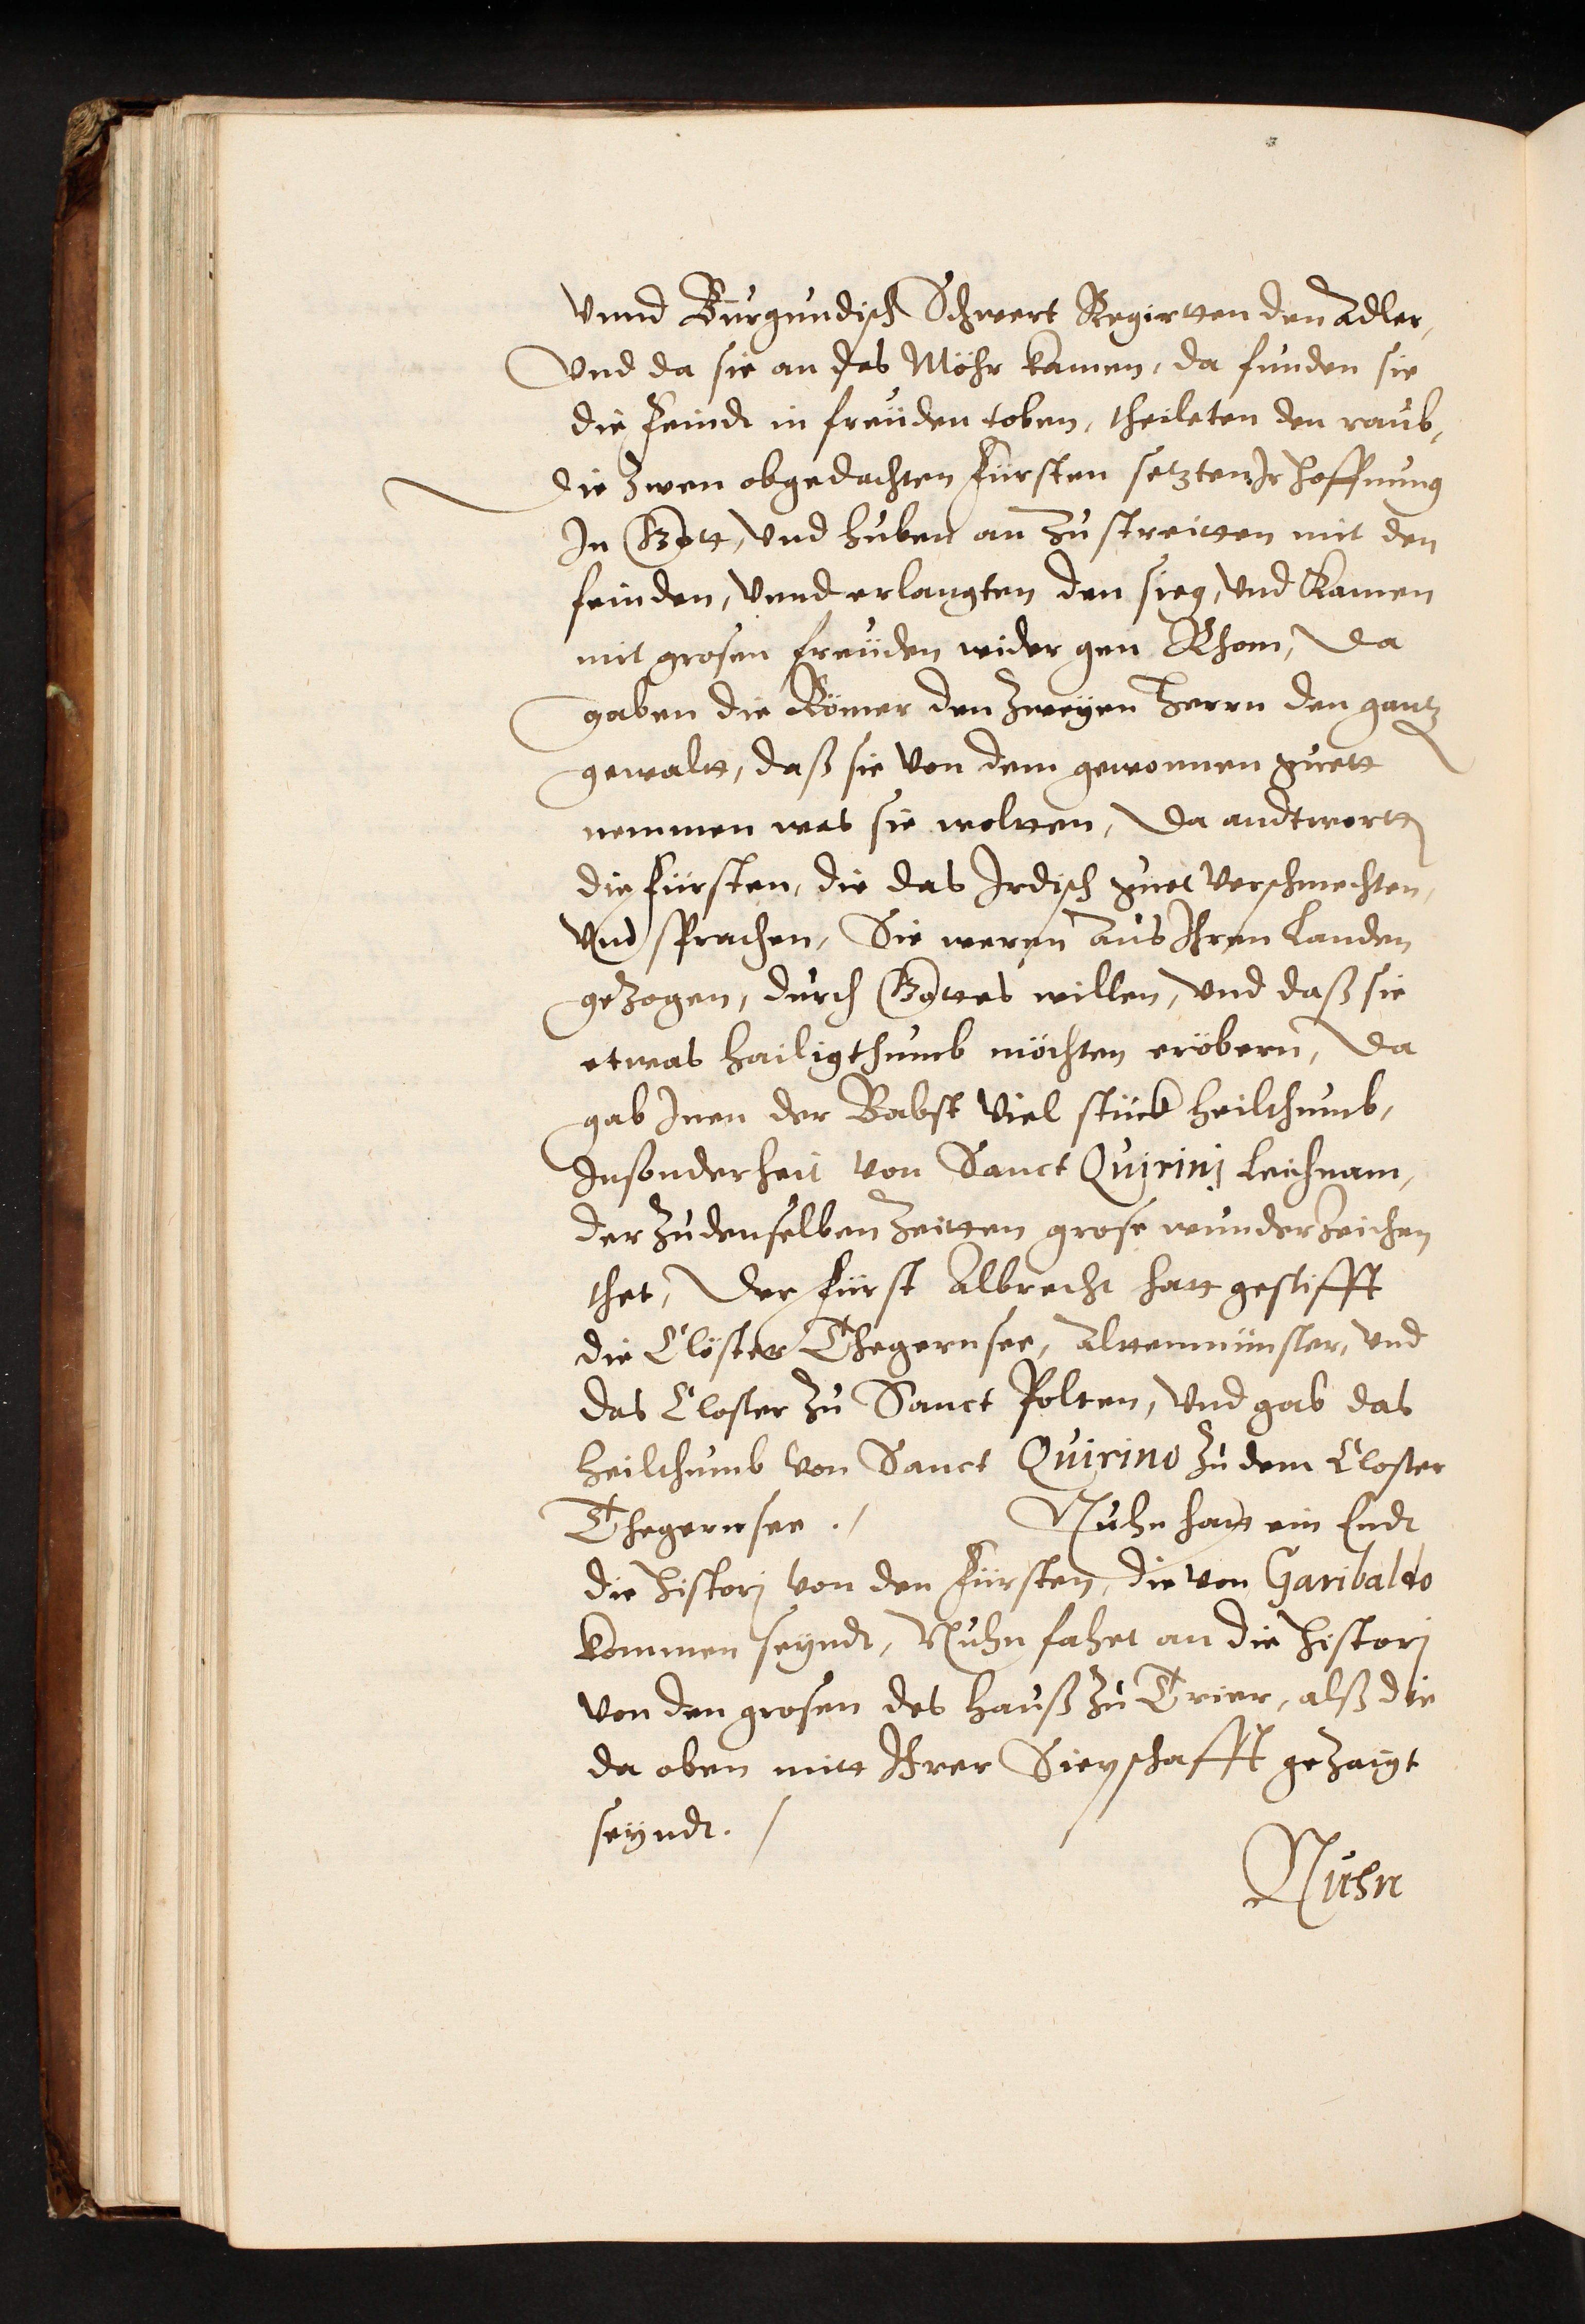 Vnnd Burgundisch Schwert Regirtten den Adler,
Vnd da sie an das Möhr kamen, da funden sie
die Feindt in freüden toben, theileten den raub,
Die zwen obgedachten Fürsten setzten Ir hoffnung
In Gott, Vnd huben an zu streitten mit den
feinden, Vnnd erlangten den sieg, Vnd Kamen
mit grosen freüden wider gen Rhom, Da
gaben die Römer den Zweyen Herrn den gantz
gewaltt, daß sie Von dem gewonnen guett
nemmen was sie woltten, Da andtwortt
die Fürsten, die das Irdisch guet Verschmechten,
Vnd sprachen, Sie weren aus Ihren Landen
geZogen, durch Gottes willen, Vnd daß sie
etwas hailigthumb möchten eröbern, Da
gab Inen der Babst Viel stück heilthumb,
Insonderheit von Sanct Quirinj leichnam,
der Zu denselben Zeitten grose wunderZeichen
thet, Der Fürst Albrecht hatt gestifft
die Clöster Thegernsee, Altenmünster, Vnd
das Closter Zu Sanct Polten, Vnd gab das
heilthumb von Sanct Quirino Zu dem Closter
Thegernsee. / Nuhn hatt ein Endt
die Historj Von den Fürsten, die von Garibaldo
kommen seyndt, Nuhn fahet an die Historj
Von den grosen des Hauß Zu Trier, alß die
da oben mitt Ihrer Siepschafft geZaigt
seyndt. /
Nuhn